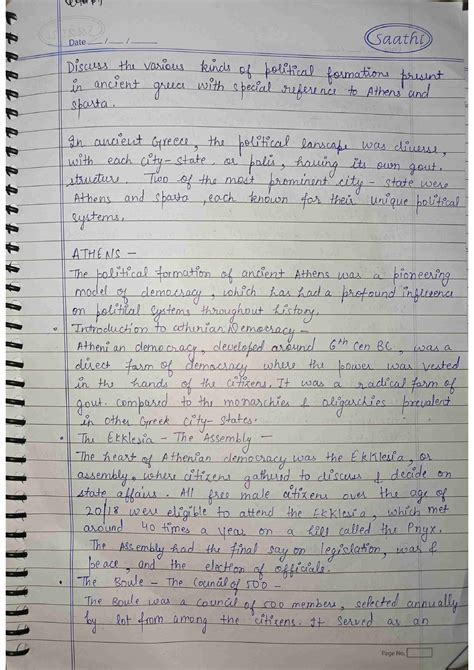 Date __/__/__
Saathi
Discuss the various kinds of political formations present
in ancient greece with special reference to Athens and
sparta.
In ancient Greece, the political lanscape was diverse,
with each city-state or polis, having its own govt.
structure. Two of the most prominent city-state were
Athens and sparta, each known for their unique political
systems.
ATHENS -
The political formation of ancient Athens was a pioneering
model of democracy, which has had a profound influence
on political systems throughout history.
• Introduction to athenian Democracy -
Athenian democracy, developed around 6th cen BC, was a
direct form of democracy where the power was vested
in the hands of the citizens. It was a radical form of
govt. compared to the monarchies & oligarchies prevalent
in other Greek city-states.
• The Ekklesia - The Assembly -
The heart of Athenian democracy was the Ekklesia, or
assembly, where citizens gathered to discuss & decide on
state affairs. All free male citizens over the age of
20/18 were eligible to attend the Ekklesia, which met
around 40 times a year on a hill called the Pnyx.
The Assembly had the final say on legislation, war &
peace, and the election of officials.
• The Boule - The Council of 500 -
The Boule was a council of 500 members, selected annually
by lot from among the citizens. It served as an
Page No.